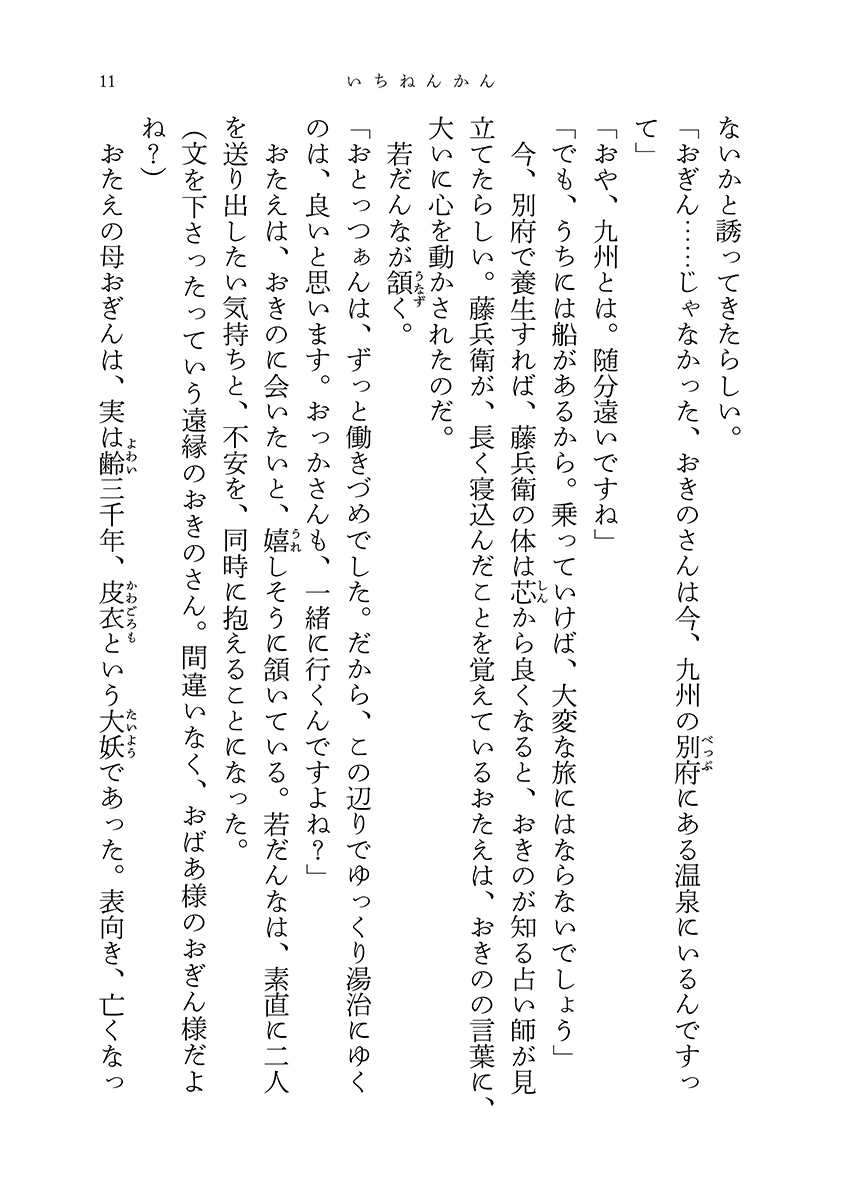 11
いちねんかん
ないかと誘ってきたらしい。
「おぎん……じゃなかった、おきのさんは今、九州の別府にある温泉にいるんですっ
べっぷ
て」
「おや、九州とは。随分遠いですね」
「でも、うちには船があるから。乗っていけば、大変な旅にはならないでしょう」
今、別府で養生すれば、藤兵衛の体は芯から良くなると、おきのが知る占い師が見
しん
立てたらしい。藤兵衛が、長く寝込んだことを覚えているおたえは、おきのの言葉に、
大いに心を動かされたのだ。
若だんなが頷く。
うなず
「おとっつぁんは、ずっと働きづめでした。だから、この辺りでゆっくり湯治にゆく
のは、良いと思います。おっかさんも、一緒に行くんですよね？」
おたえは、おきのに会いたいと、嬉しそうに頷いている。若だんなは、素直に二人
うれ
を送り出したい気持ちと、不安を、同時に抱えることになった。
（文を下さったっていう遠縁のおきのさん。間違いなく、おばあ様のおぎん様だよ
ね？）
おたえの母おぎんは、実は齢三千年、皮衣という大妖であった。表向き、亡くなっ
よわい
かわごろも
たいよう